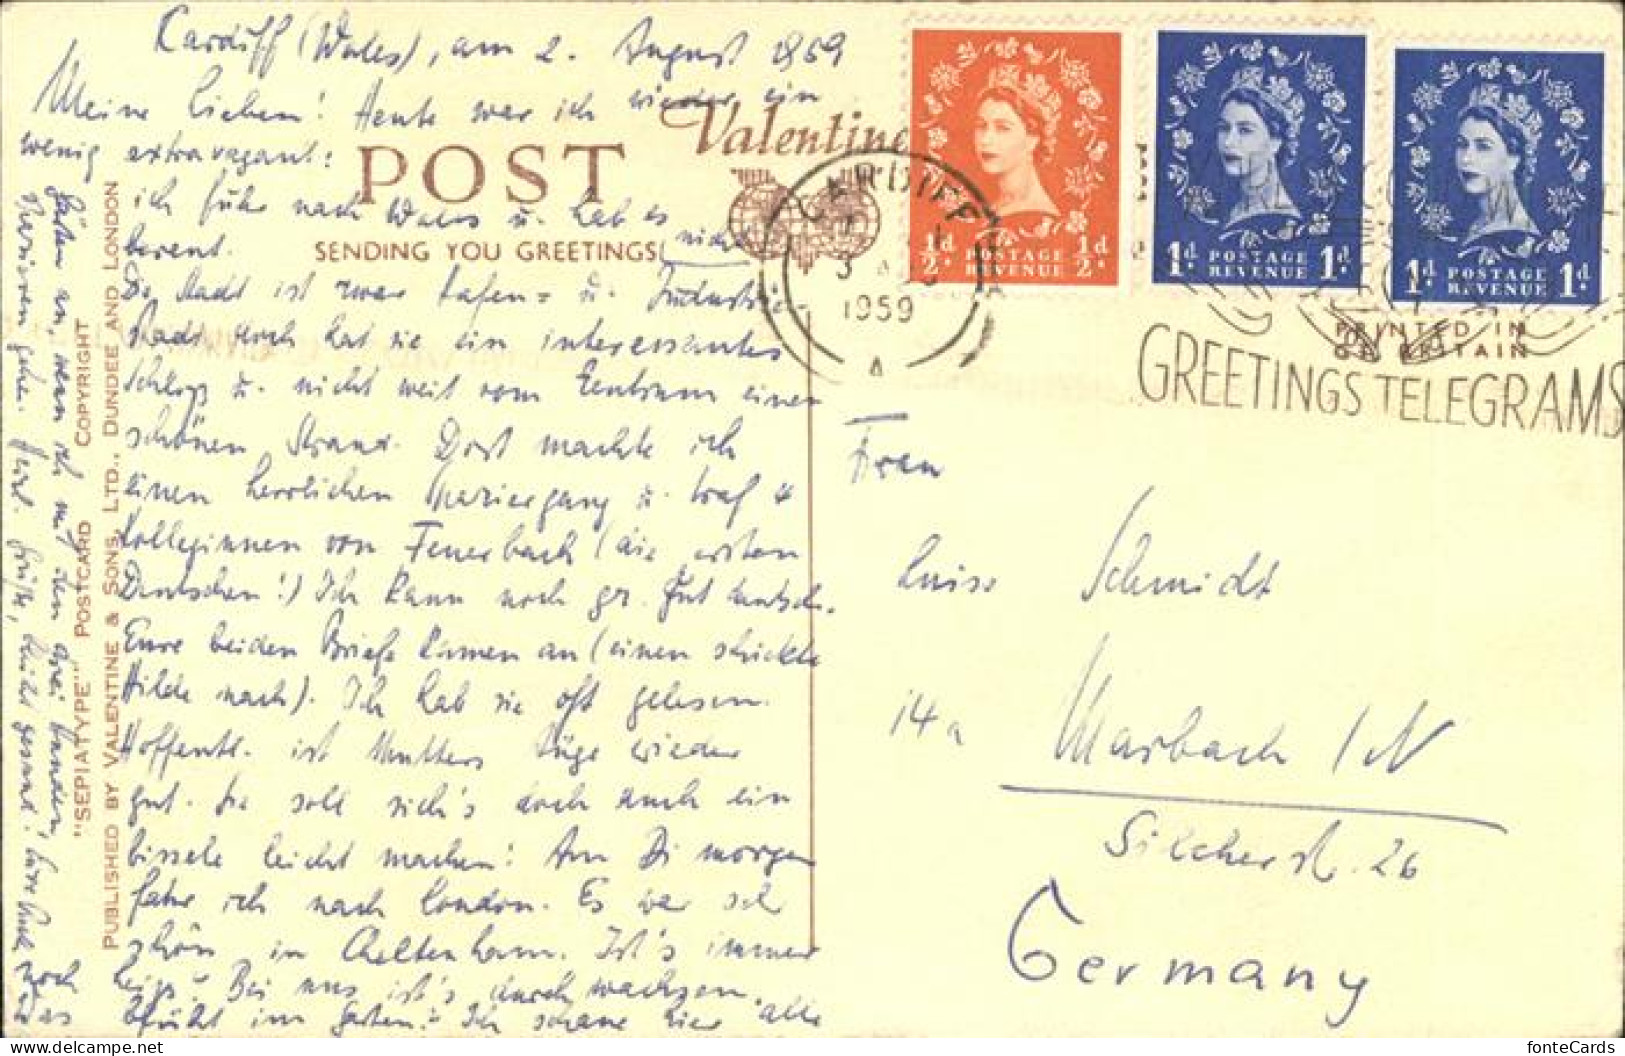 Cardiff (Wales), am 2. August 1959
Meine Lieben! Heute war ich wieder ein
wenig extravagant:
ich fuhr nach Wales u. hab es
(nicht
bereut.
Die Stadt ist zwar Hafen= u. Industrie-
stadt doch hat sie ein interessantes
Schloß u. nicht weit vom Zentrum einen
schönen Strand. Dort machte ich
einen herrlichen Spaziergang u. traf 4
Kolleginnen von Feuerbach (die ersten
Deutschen!) Ich kann noch gr. gut deutsch.
Eure beiden Briefe kamen an (einen schickte
Hilde nach). Ich hab sie oft gelesen.
Hoffentl. ist Mutters Auge wieder
gut. Sie soll sich's doch auch ein
bissele leicht machen! Am Di morgen
fahre ich nach London. Es war sehr
schön in Cheltenham. Ist's immer
heiß? Bei uns ist's durchwachsen.
blüht im Garten? Ich schaue hier alle
Gärten an, wenn ich mit den drei Hunden
spazieren gehe. Herzl. Grüße, bleibt gesund! Eure
noch
was
POST
Valentine
SENDING YOU GREETINGS
"SEPIATYPE" POSTCARD COPYRIGHT
PUBLISHED BY VALENTINE & SONS, LTD., DUNDEE AND LONDON
CARDIFF
3
1959
A
½d. POSTAGE REVENUE ½d.
1d. POSTAGE REVENUE 1d.
1d. POSTAGE REVENUE 1d.
PRINTED IN
GR. BRITAIN
GREETINGS TELEGRAMS
Frau
Luise Schmidt
14a Marbach / N
Silcherstr. 26
Germany
fonteCards